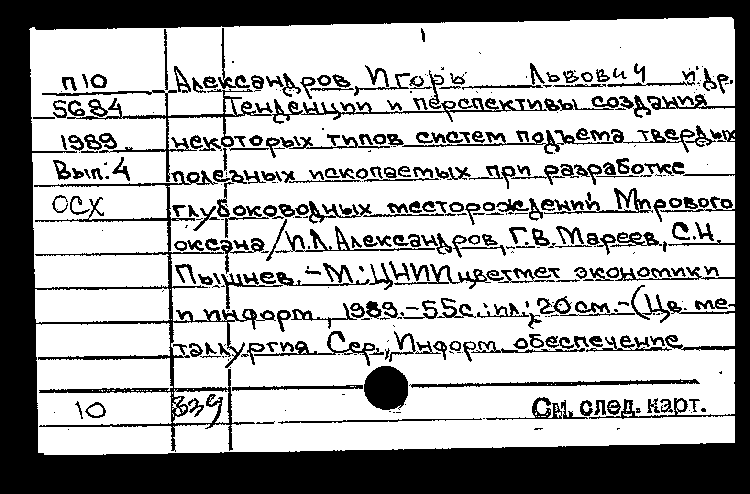 П10 Александров, Игорь Львович и др.
5684 Тенденции и перспективы создания
1989. некоторых типов систем подъема твердых
Вып. 4 полезных ископаемых при разработке
ОСХ глубоководных месторождений Мирового
океана / И.Л. Александров, Г.В. Мареев, С.Н.
Пышнев. - М.: ЦНИИцветмет экономики
и информ., 1989. - 55с.: ил.; 20см. - (Цв. ме-
таллургия. Сер. „Информ. обеспечение
10 См. след. карт.